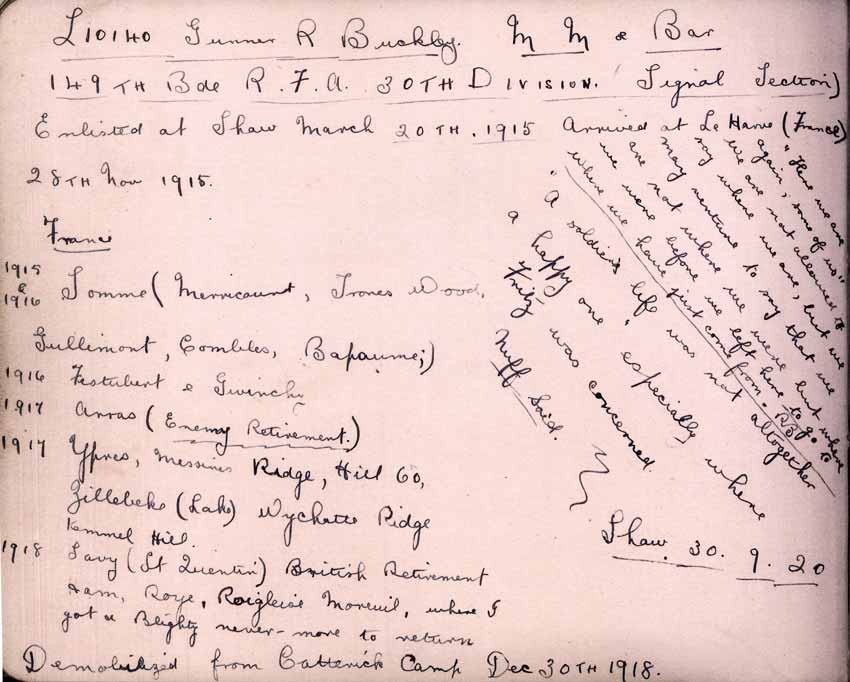 L10140 Gunner R Buckley. M M & Bar
149TH Bde R.F.A. 30TH DIVISION. Signal Section)
Enlisted at Shaw March 20TH. 1915 Arrived at Le Havre (France)
28TH Nov 1915.
France
1915
&
1916 Somme (Merricourt, Trones Wood,
Gullimont, Combles, Bapaume;)
1916 Festubert & Givinchy
1917 Arras (Enemy Retirement.)
1917 Ypres, Messines Ridge, Hill 60,
Zillebeke (Lake) Wychette Ridge
Kemmel Hill.
1918 Savy (St Quentin) British Retirement
Ham, Roye, Roigleise Moreuil, where I
got a Blighty never-more to return
Demobilized from Catterick Camp Dec 30TH 1918.
"Here we are
again; some of us"
we are not allowed to
say where we are, but we
may venture to say that we
are not where we were but where
we were before we left here to go to
where we have just come from. RB
"A soldier's life was not altogether
a happy one especially where
Fritz was concerned.
Nuff Said.
Shaw. 30. 9. 20